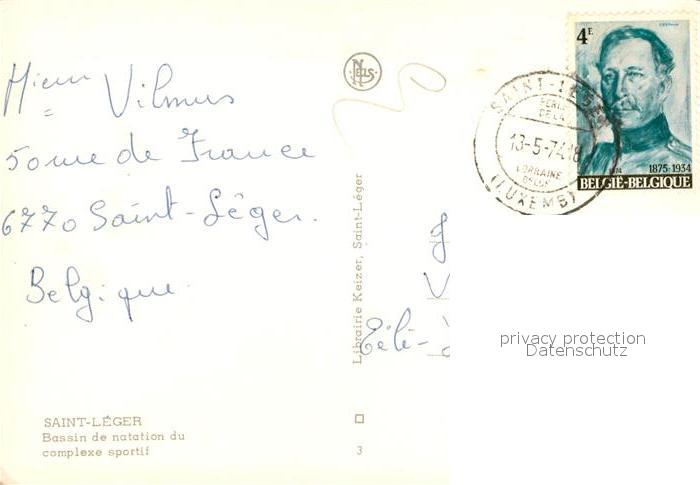 Vilmus
50 rue de France
6770 Saint-Léger.
Belgique
SAINT-LÉGER
Bassin de natation du
complexe sportif
NELS
Librairie Keizer, Saint-Léger
3
4F
1875-1934
BELGIË-BELGIQUE
SAINT-LÉGER
PERLE
DE LA
13-5-74 18
LORRAINE
BELGE
(LUXEMB)
V
privacy protection
Datenschutz